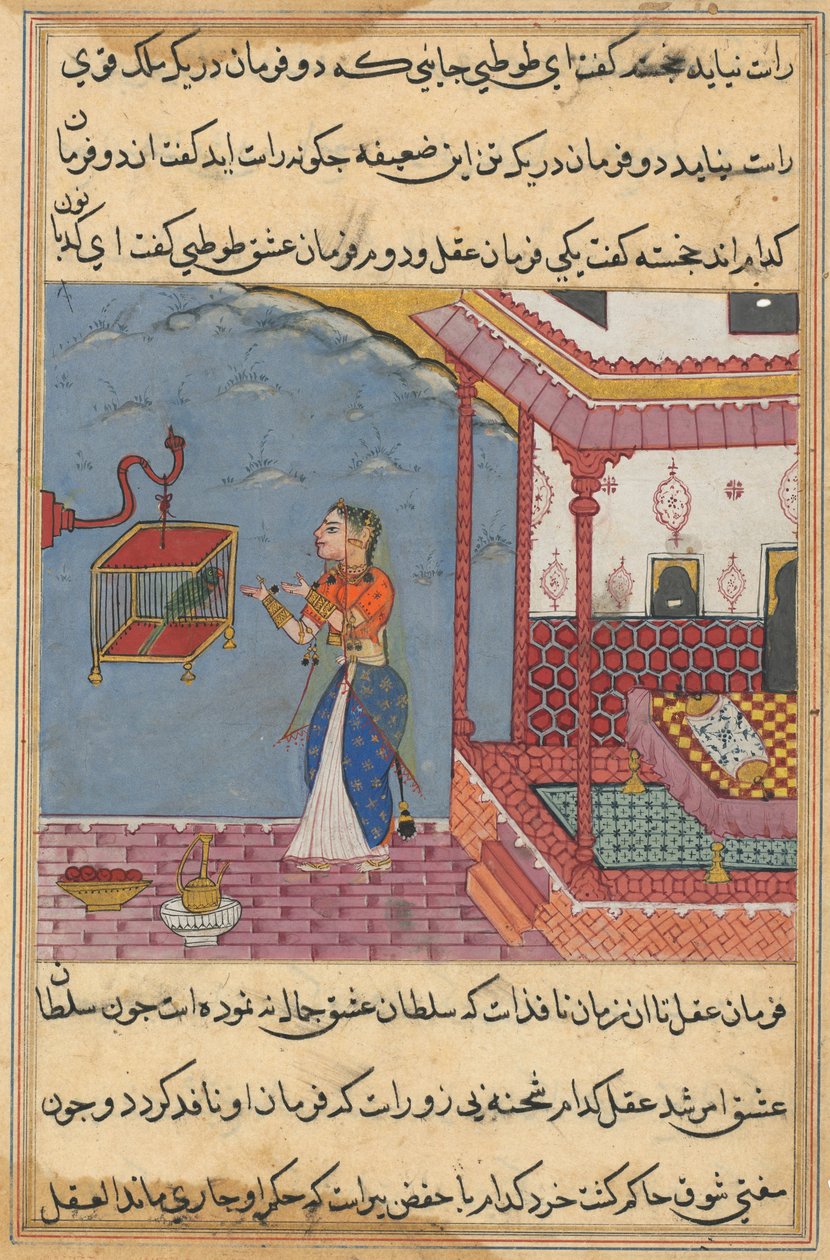 راست نیاید خجسته گفت ای طوطی جایی که دو فرمان در یک ملک قوی
راست نیاید دو فرمان در یک تن این ضعیفه چگونه راست اید گفت ان دو فرمان
کدام اند خجسته گفت یکی فرمان عقل و دوم فرمان عشق طوطی گفت ای کدبانون
فرمان عقل تا ان زمان نافذ است که سلطان عشق جمال نه نموده است جون سلطان
عشق امر شد عقل کدام شحنه بی زور است که فرمان او نافد کردد و جون
مفتی شوق حاکم کشت خرد کدام است که حکم او جاری ماند العقل